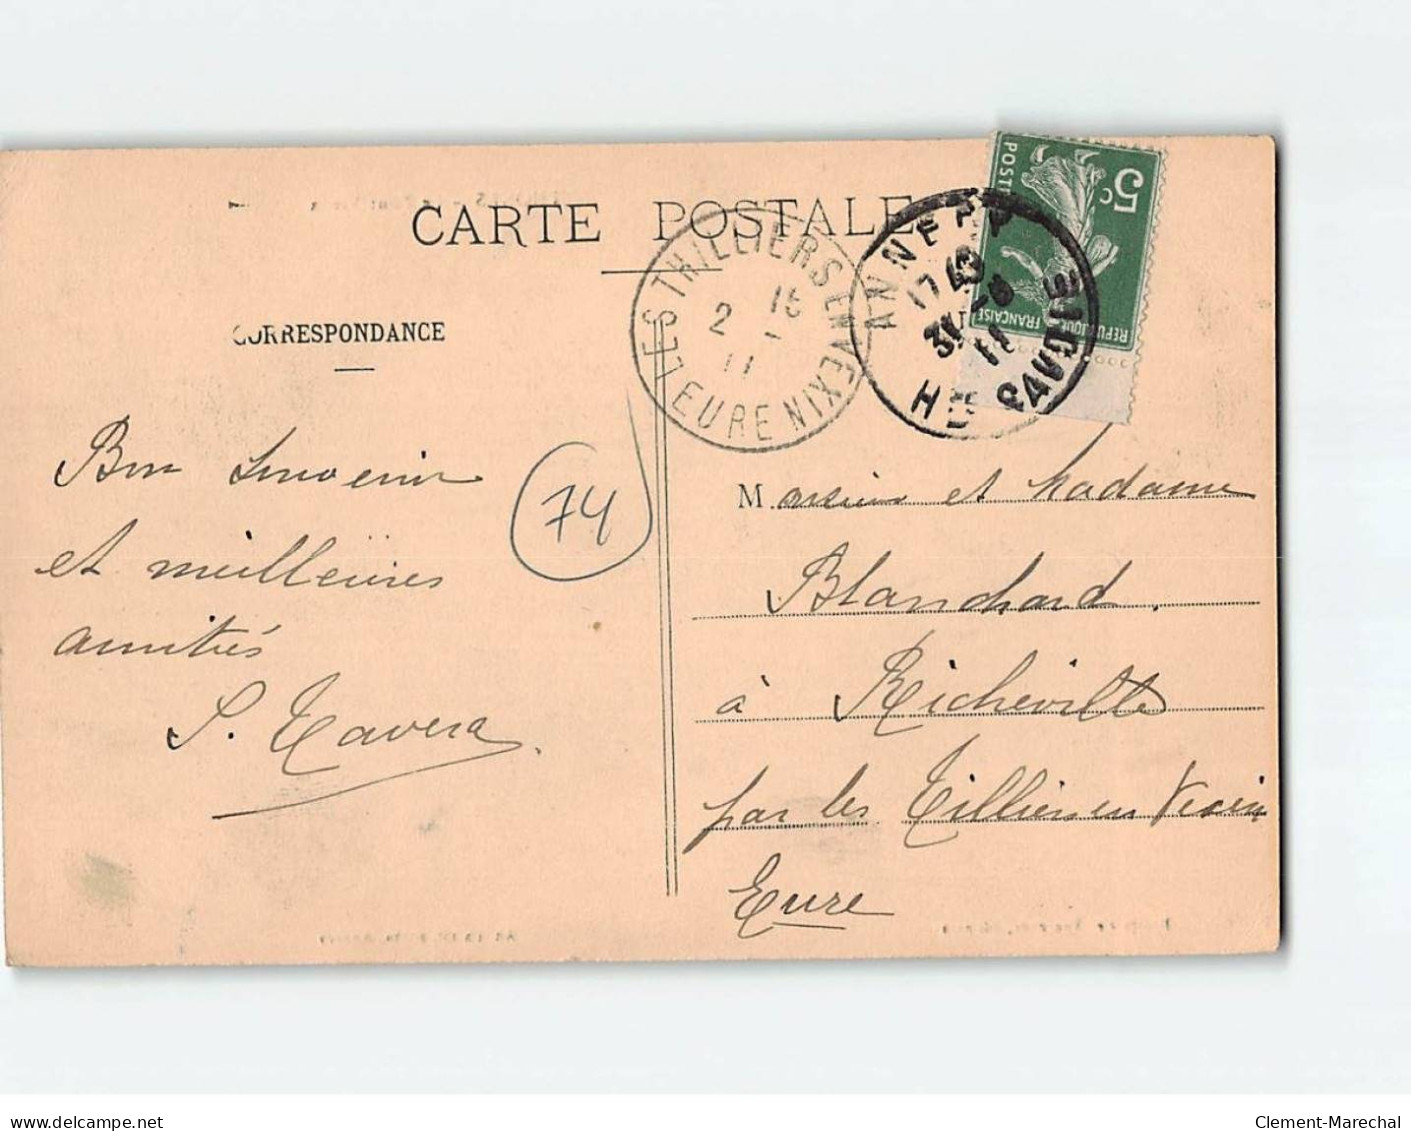 CARTE POSTALE
CORRESPONDANCE
5c
POSTES
REPUBLIQUE
FRANÇAISE
LES THILLIERS EN VEXIN
EURE
2 15
11
ANNECY
17 40
31 - 8
11
HTE SAVOIE
74
Bon souvenir
et meilleures
amitiés
S. Tavera
Monsieur et Madame
Blanchard
à Richeville
par les Tilliers en Vexin
Eure
www.delcampe.net
Clement-Marechal